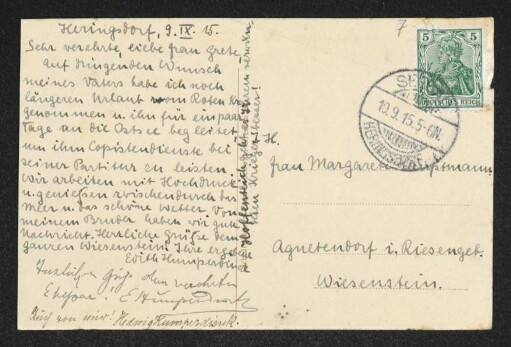 Heringsdorf, 9. IX. 15.
Sehr verehrte, liebe Frau Grete,
auf dringenden Wunsch
meines Vaters habe ich noch
längeren Urlaub vom Roten Kr.
genommen u. ihn für ein paar
Tage an die Ostsee begleitet
um ihm Copistendienste bei
seiner Partitur zu leisten.
Wir arbeiten mit Hochdruck
u. genießen zwischendurch das
Meer u. das schöne Wetter. Von
meinem Bruder haben wir gute
Nachricht. Herrliche Grüße dem
ganzen Wiesenstein! Ihre ergebene
Edith Humperdinck
Herzlichen Gruß dem verehrten
Ehepaar. E Humperdinck
Auch von mir! Hedwig Humperdinck.
Hoffentlich geht es Ihrem
Kriegsfreiwilligen
5 5
DEUTSCHES REICH
10.9.15.5-6N.
H.
Frau Margarete Hauptmann
Agnetendorf i. Riesengeb.
Wiesenstein.
7